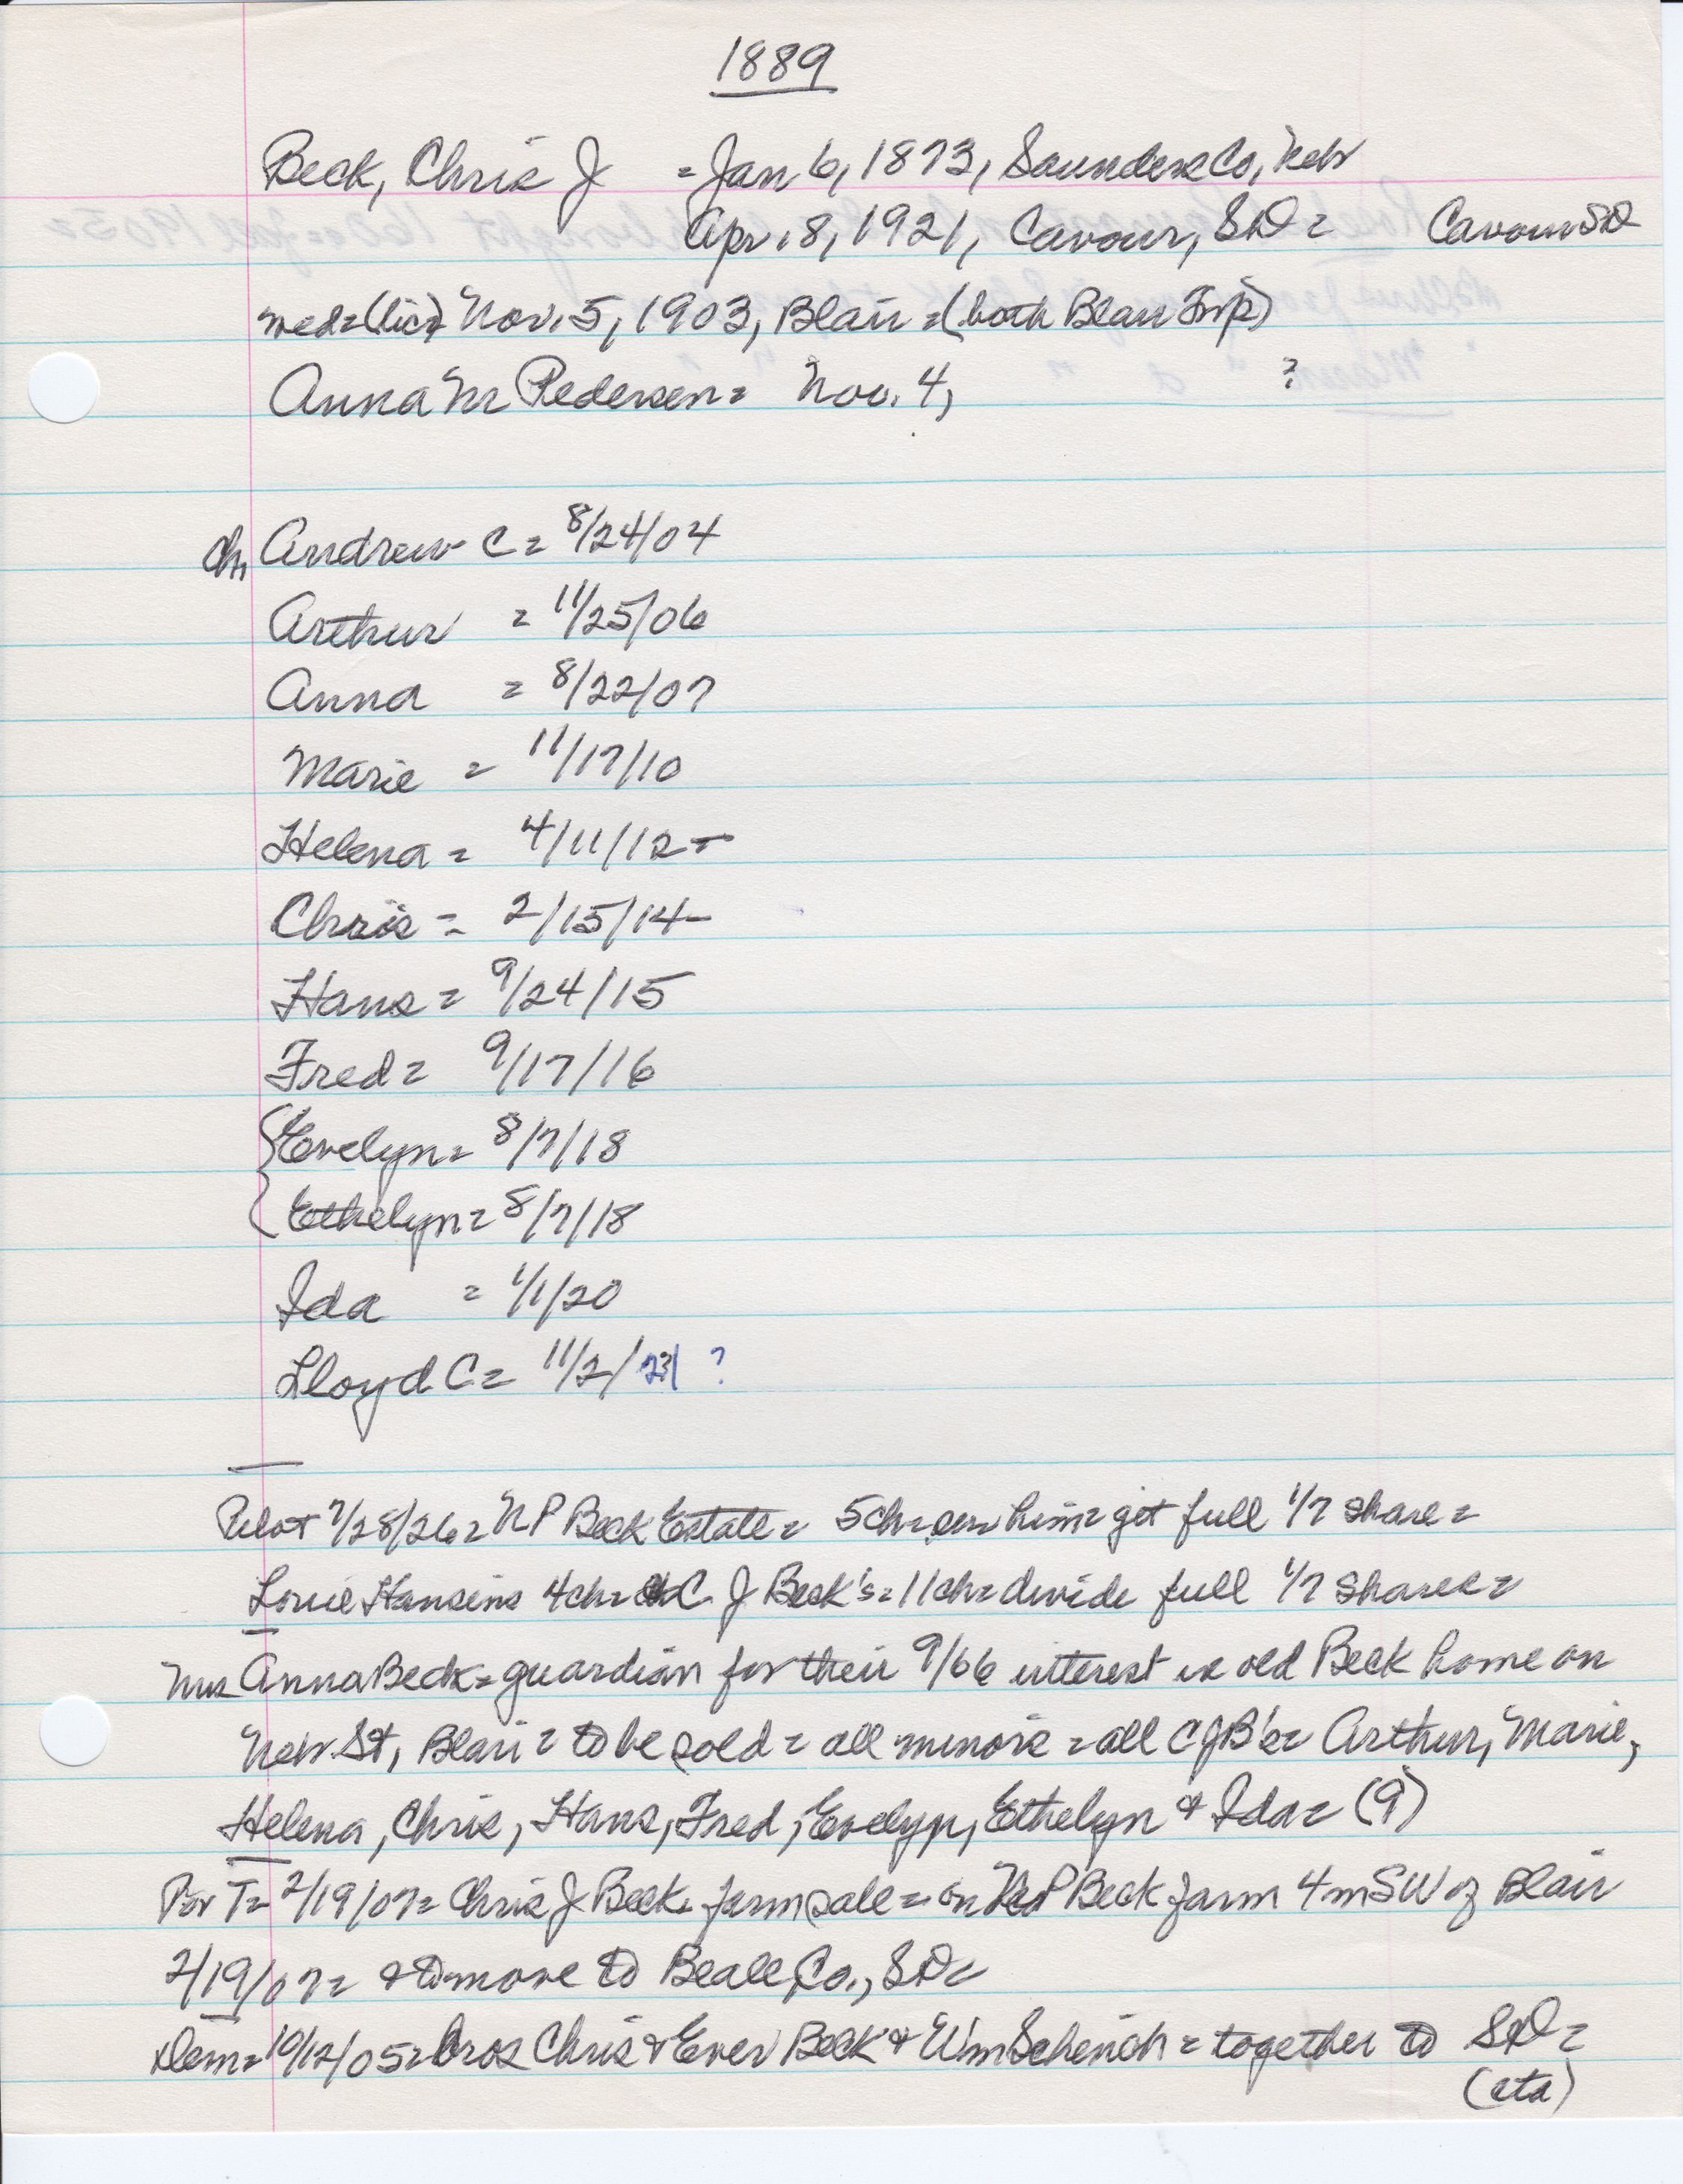 1889
Beck, Chris J = Jan 6, 1873, Saunders Co, Nebr
Apr. 8, 1921, Cavour, SD = Cavour SD
med = (lic) Nov. 5, 1903, Blair = (both Blair Twp)
Anna M Pedersen = Nov. 4, ?
Ch, Andrew C = 8/24/04
Arthur = 11/25/06
Anna = 8/22/07
Marie = 11/17/10
Helena = 4/11/12 =
Chris = 2/15/14 -
Hans = 9/24/15
Fred = 9/17/16
Evelyn = 8/7/18
Ethelyn = 8/7/18
Ida = 1/1/20
Lloyd C = 11/2/ ?
Pilot 7/28/26 = N P Beck Estate = 5 ch = him = get full 1/7 share =
Louie Hansens 4 ch = C. J Beck's = 11 ch = divide full 1/7 shares =
Mrs Anna Beck = guardian for their 9/66 interest in old Beck home on
Nebr. St, Blair = to be sold = all minors = all CJB's = Arthur, Marie,
Helena, Chris, Hans, Fred, Evelyn, Ethelyn & Ida = (9)
T = 2/19/07 = Chris J Beck = farm sale = on P Beck farm 4 m SW of Blair
2/19/07 = & to move to Co., SD =
Dem = 10/12/05 = bros Chris & Ever Beck & Wm = together to SD =
(sta)